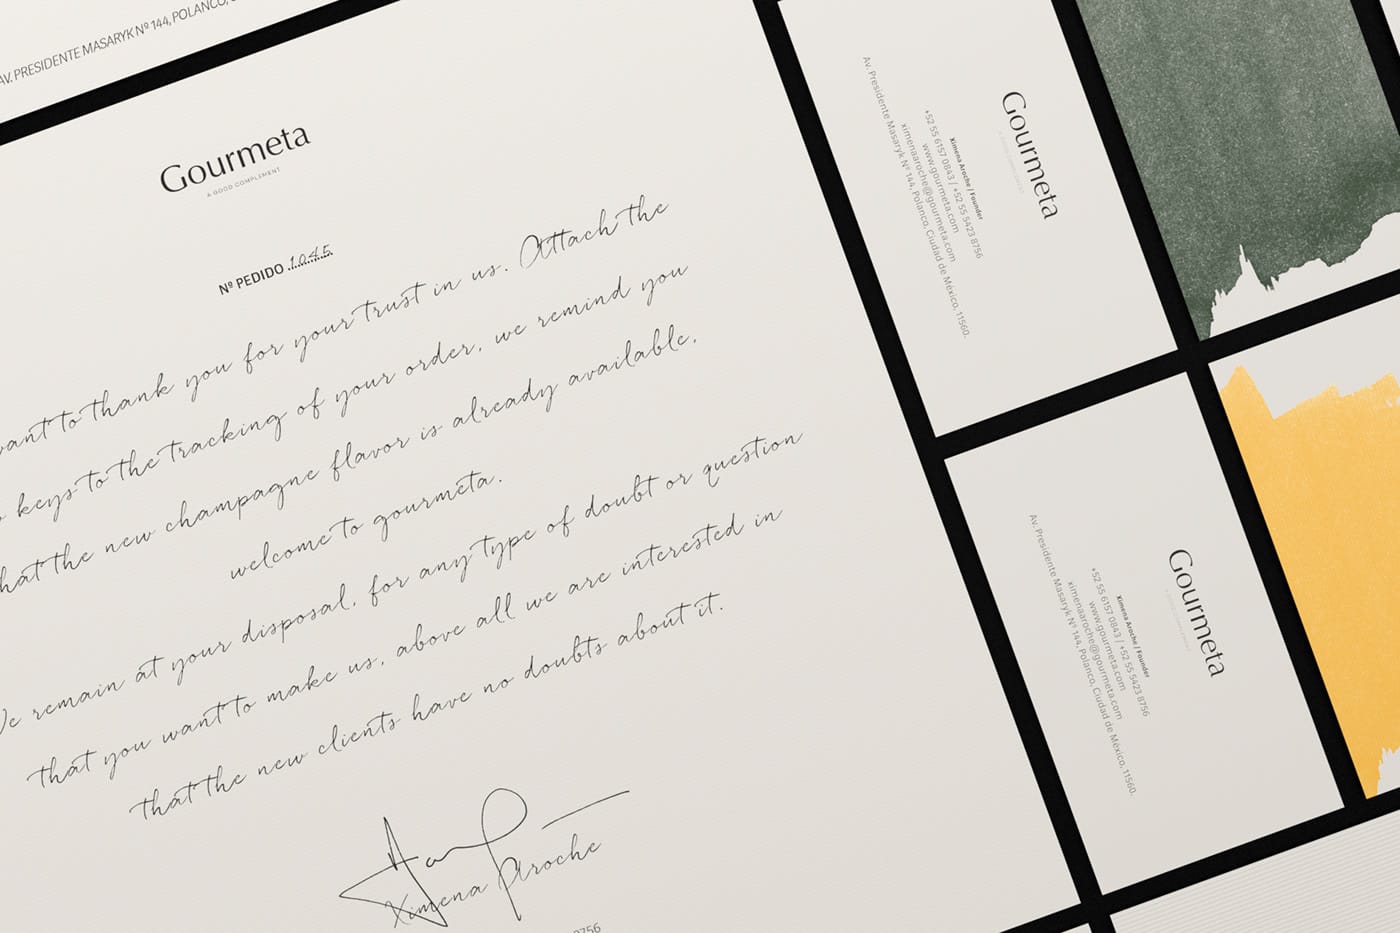 AV. PRESIDENTE MASARYK Nº 144, POLANCO,
Gourmeta
A GOOD COMPLEMENT
Nº PEDIDO 1045
want to thank you for your trust in us. Attach the
keys to the tracking of your order, we remind you
hat the new champagne flavor is already available,
welcome to gourmeta.
We remain at your disposal, for any type of doubt or question
that you want to make us, above all we are interested in
that the new clients have no doubts about it.
Ximena Aroche
8756
Gourmeta
Ximena Aroche / Founder
+52 55 6157 0843 / +52 55 5423 8756
www.gourmeta.com
ximenaaroche@gourmeta.com
Av. Presidente Masaryk Nº 144, Polanco, Ciudad de México, 11560.
Gourmeta
Ximena Aroche / Founder
+52 55 6157 0843 / +52 55 5423 8756
www.gourmeta.com
ximenaaroche@gourmeta.com
Av. Presidente Masaryk Nº 144, Polanco, Ciudad de México, 11560.